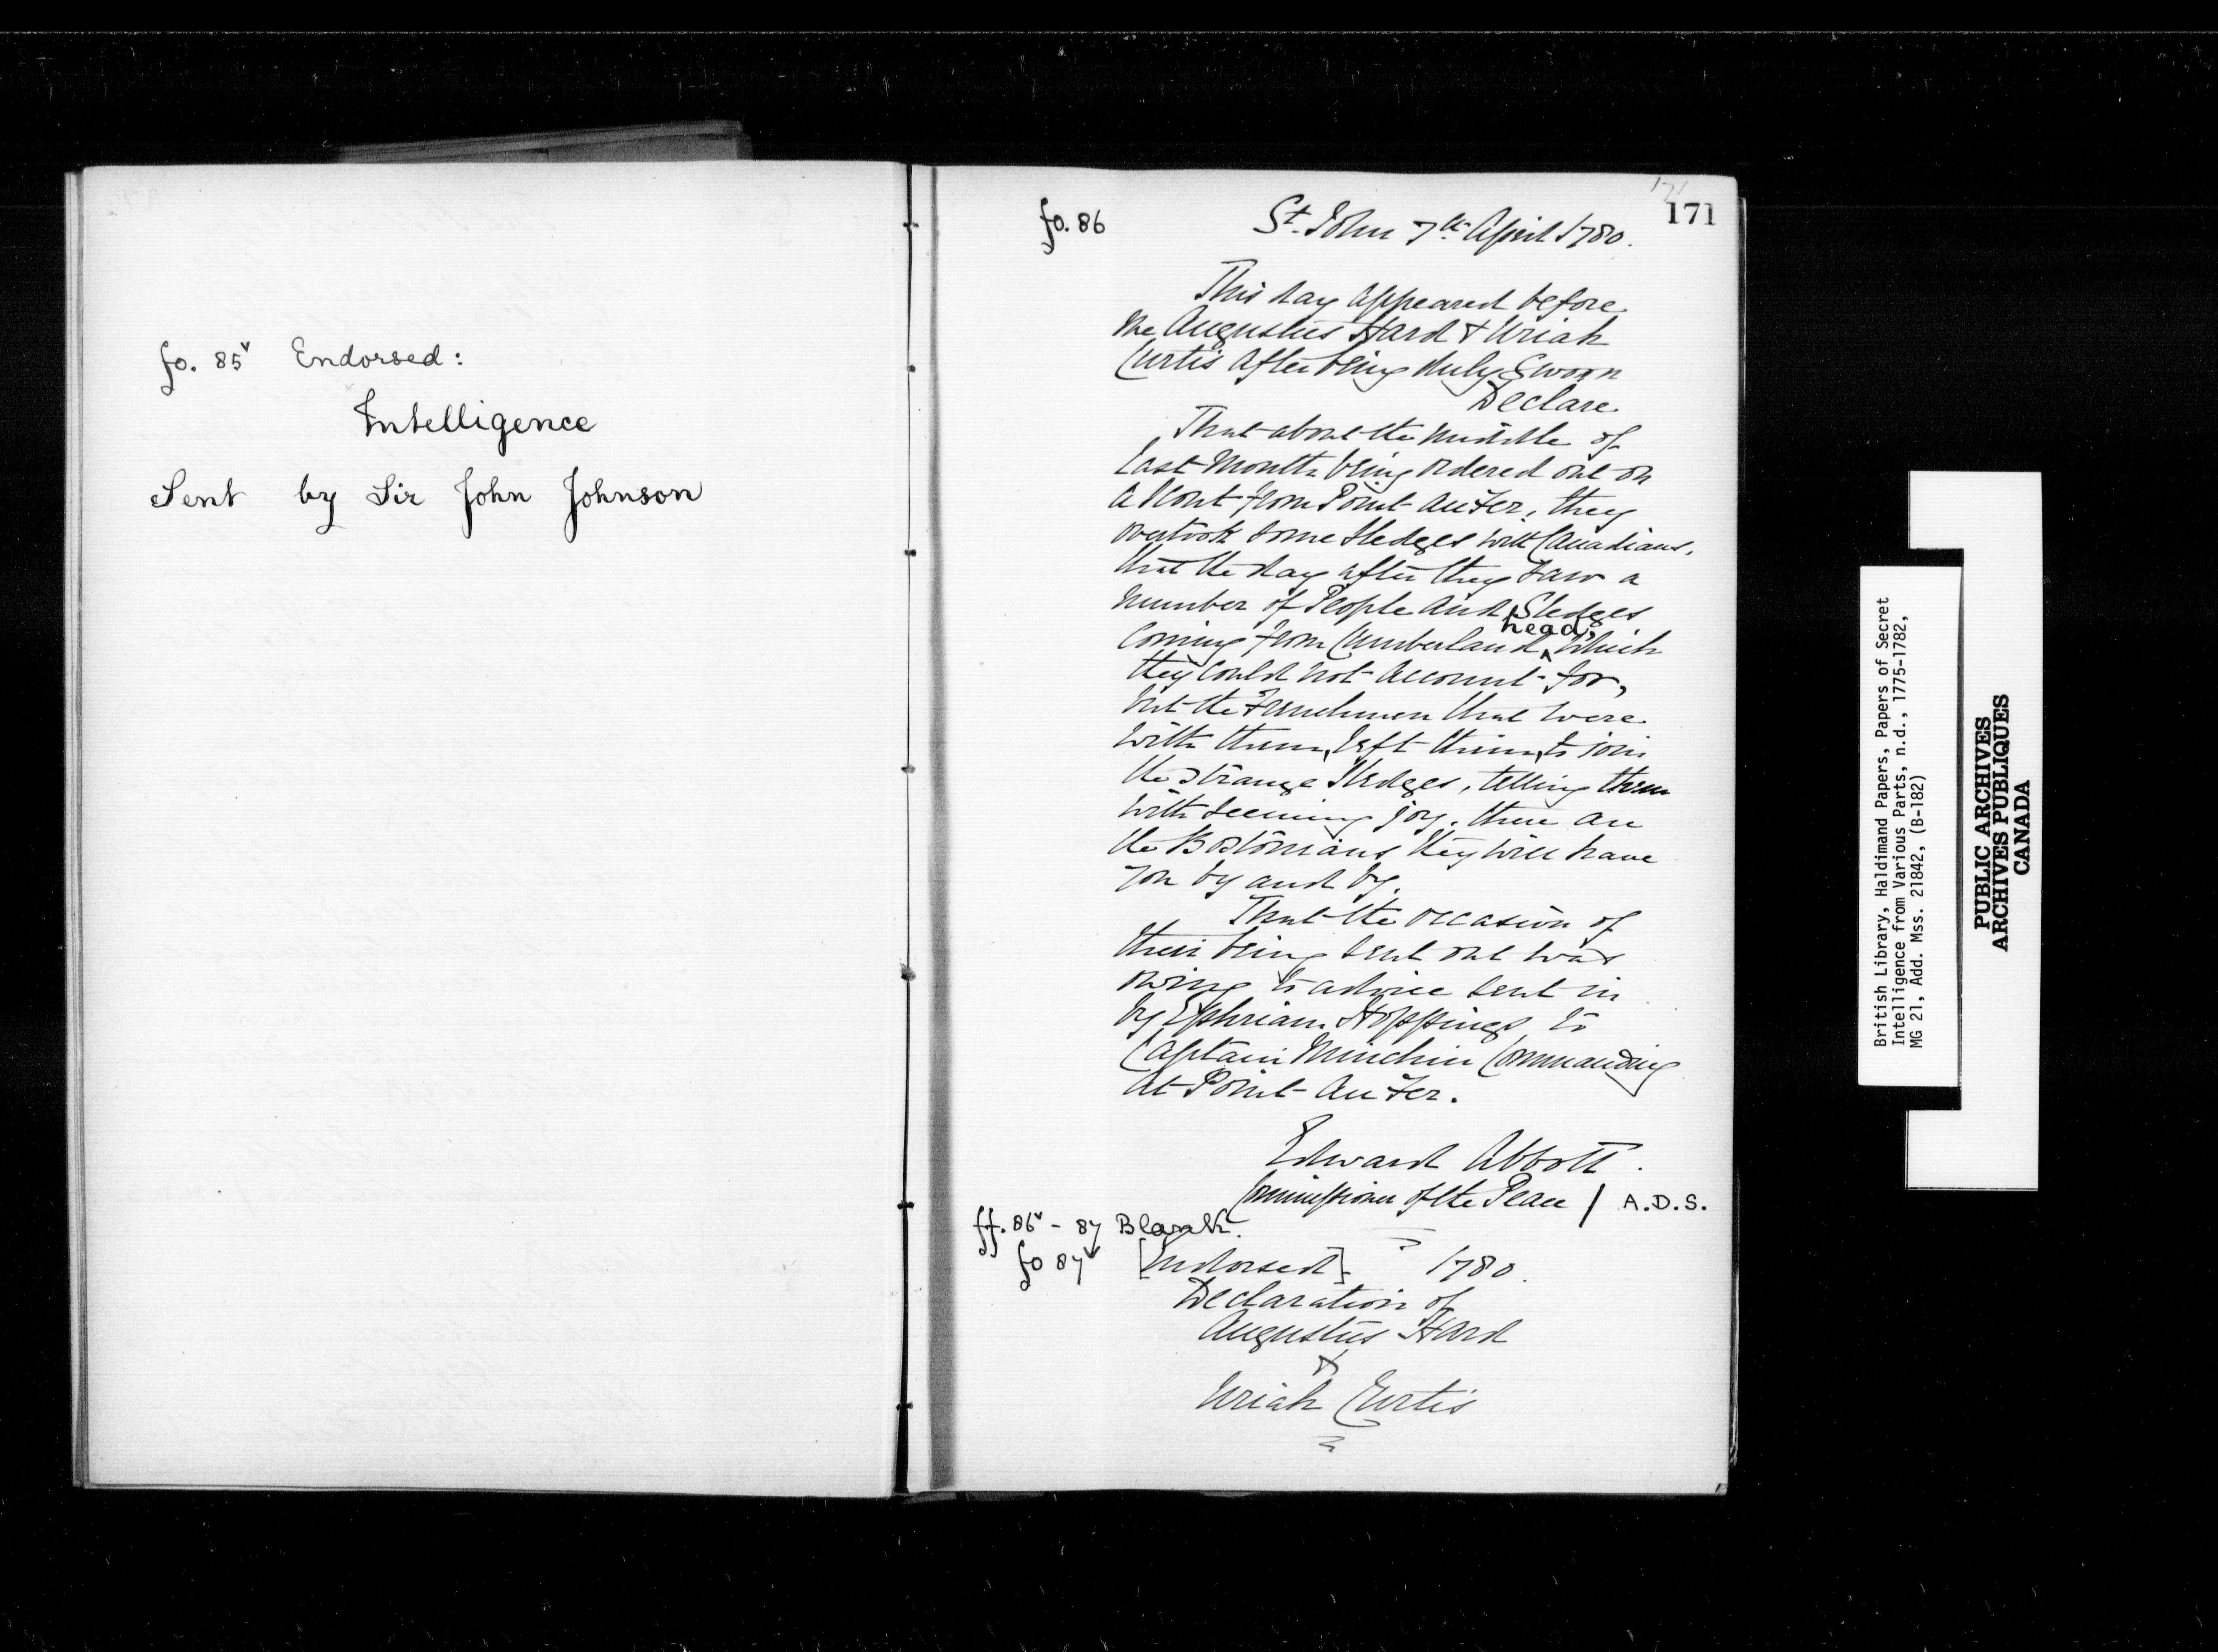 fo. 85v Endorsed:
Intelligence
Sent by Sir John Johnson
171
171
fo. 86 St. John 7th April 1780.
This day appeared before
me Augustus Hard & Uriah
Curtis after being duly Sworn
Declare
That about the middle of
Last Month being ordered out on
a Scout from Point au Fer, they
overtook some Sledges with Canadians,
that the day after they saw a
number of People and Sledges
head,
Coming from Cumberland ^ Which
they Could not account for,
but the Frenchmen that were
with them, left them, to join
the strange Sledges, telling them
with seeming joy. these are
the Bostonians they will have
you by and by.
That the occasion of
their being sent out was
owing to advice sent in
by Ephriam Hoppings to
Captain Minchin Commanding
at Point au Fer.
Edward Abbott.
Commissioner of the Peace / A.D.S.
ff. 86v - 87 Blank.
fo 87v [Endorsed] 1780.
Declaration of
Augustus Hard
&
Uriah Curtis
British Library, Haldimand Papers, Papers of Secret
Intelligence from Various Parts, n.d., 1775-1782,
MG 21, Add. Mss. 21842, (B-182)
PUBLIC ARCHIVES
ARCHIVES PUBLIQUES
CANADA